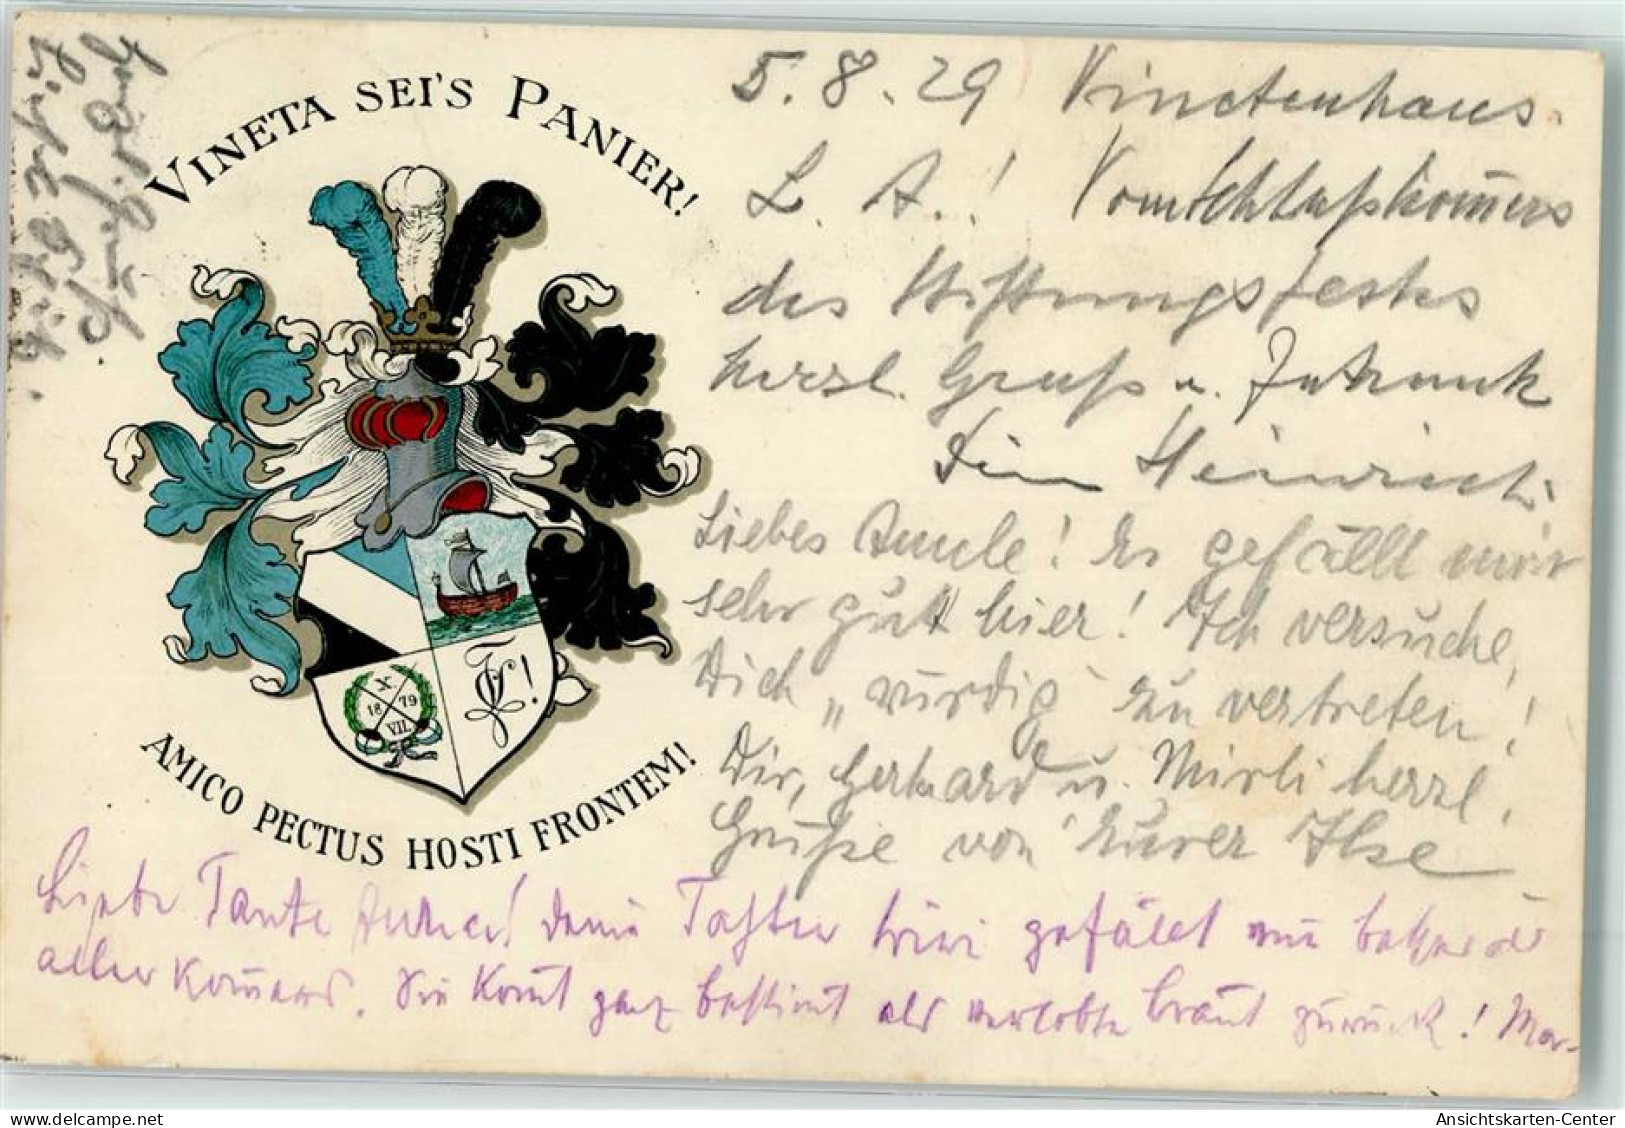 VINETA SEI'S PANIER!
X
18 79
VII
AMICO PECTUS HOSTI FRONTEM!
5. 8. 29 Vinetenhaus.
L. A.! Vom Schlußkom̄ers
des Stiftungsfestes
herzl. Gruß u. Zutrunk
Dein Heinrich.
Liebes Amele! Es gefällt mir
sehr gut hier! Ich versuche,
Dich „würdig" zu vertreten!
Dir, Gerhard u. Mirli herzl.
Grüße von Eurer Ilse
Liebe Tante Deine Tochter gefällt
aller Kom̄ers. Sie kom̄t ganz bestim̄t als verlobte Braut zurück!
Ansichtskarten-Center